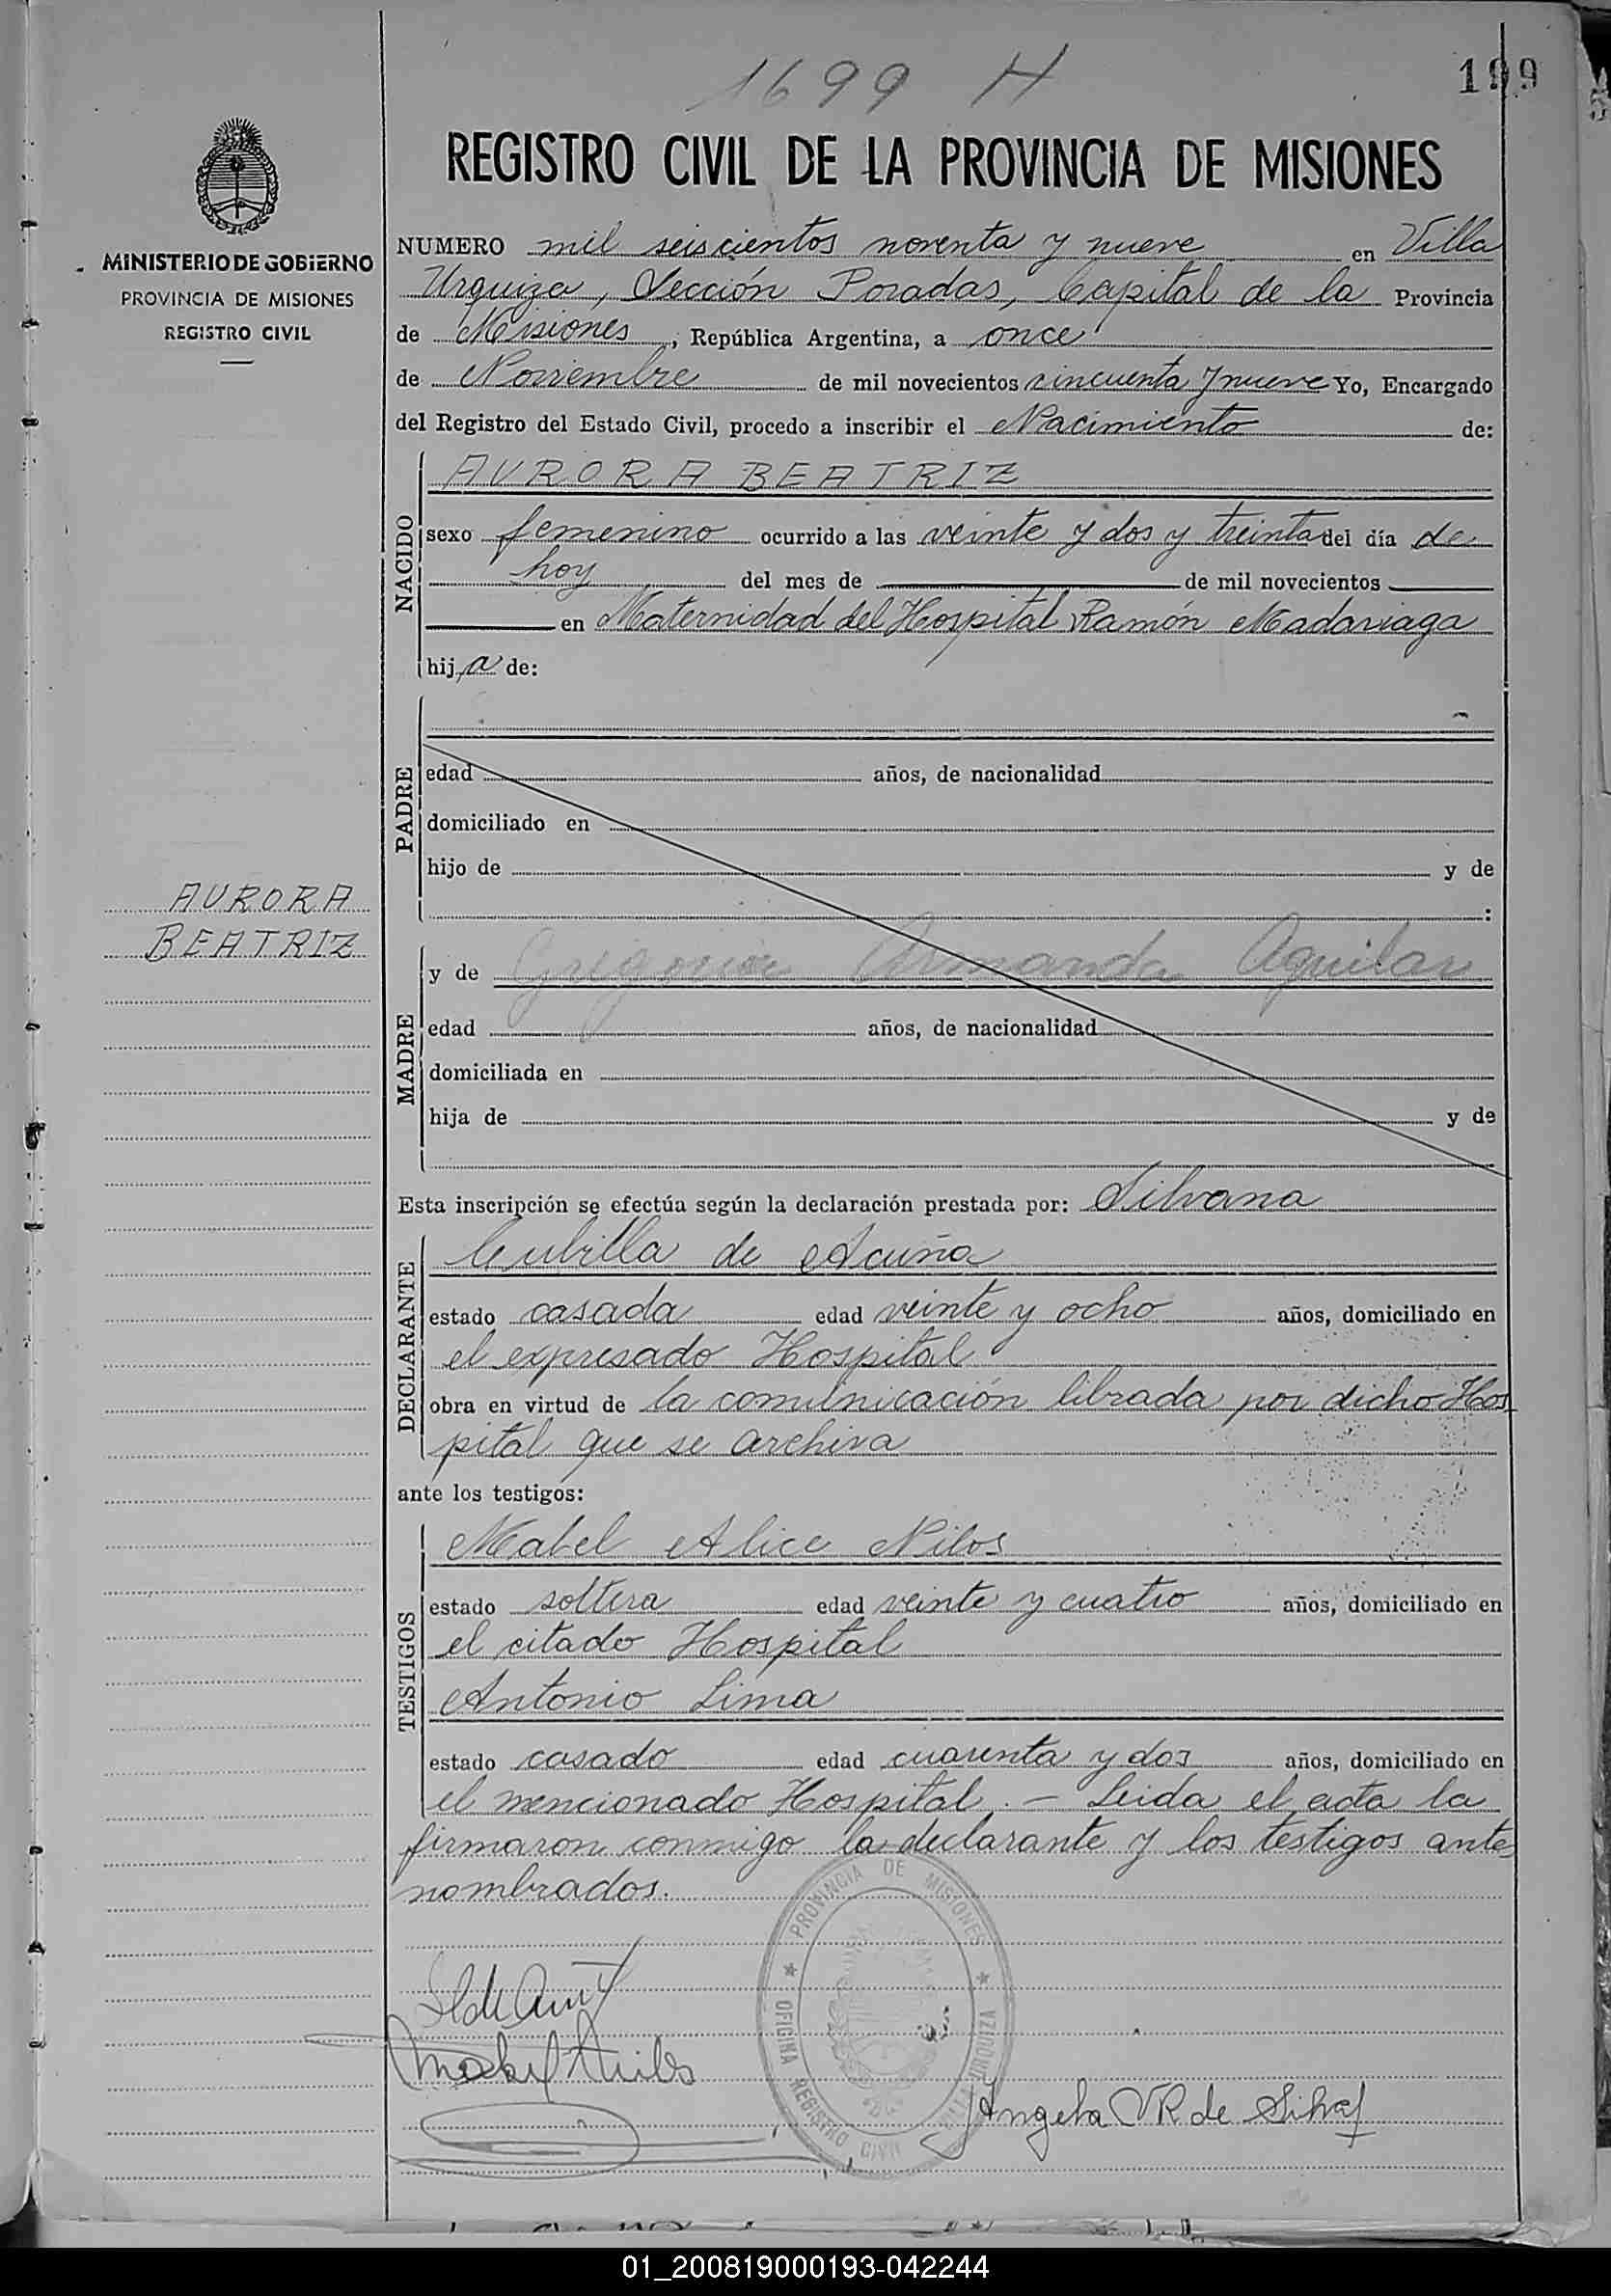 1699 H
199
REGISTRO CIVIL DE LA PROVINCIA DE MISIONES
MINISTERIO DE GOBIERNO
PROVINCIA DE MISIONES
REGISTRO CIVIL
NUMERO mil seiscientos noventa y nueve en Villa
Urquiza, Sección Posadas, Capital de la Provincia
de Misiones, República Argentina, a once
de Noviembre de mil novecientos cincuenta y nueve Yo, Encargado
del Registro del Estado Civil, procedo a inscribir el Nacimiento de:
NACIDO
AURORA BEATRIZ
sexo femenino ocurrido a las veinte y dos y treinta del día de
hoy del mes de de mil novecientos
en Maternidad del Hospital Ramón Madariaga
hija de:
PADRE
edad años, de nacionalidad
domiciliado en
hijo de y de
:
AURORA
BEATRIZ
MADRE
y de Armanda Aguilar
edad años, de nacionalidad
domiciliada en
hija de y de
Esta inscripción se efectúa según la declaración prestada por: Silvana
DECLARANTE
Cubilla de Acuña
estado casada edad veinte y ocho años, domiciliado en
el expresado Hospital
obra en virtud de la comunicación librada por dicho Hos
pital que se archiva
ante los testigos:
TESTIGOS
Mabel Alice Nilos
estado soltera edad veinte y cuatro años, domiciliado en
el citado Hospital
Antonio Lima
estado casado edad cuarenta y dos años, domiciliado en
el mencionado Hospital. - Leida el acta la
firmaron conmigo la declarante y los testigos ante
nombrados.
PROVINCIA DE MISIONES
OFICINA REGISTRO CIVIL VILLA URQUIZA
Angela R. de Silva
01_200819000193-042244